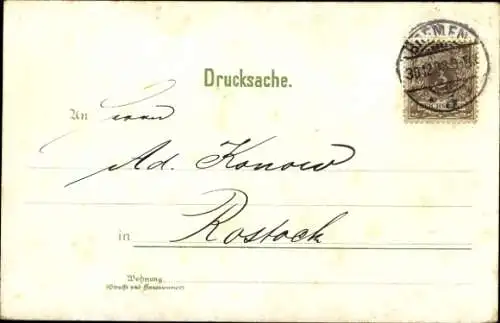 BREMEN
30.12.98.5-6N
Drucksache.
An Herrn
Ad. Konow
in Rostock
Wohnung
(Straße und Hausnummer)